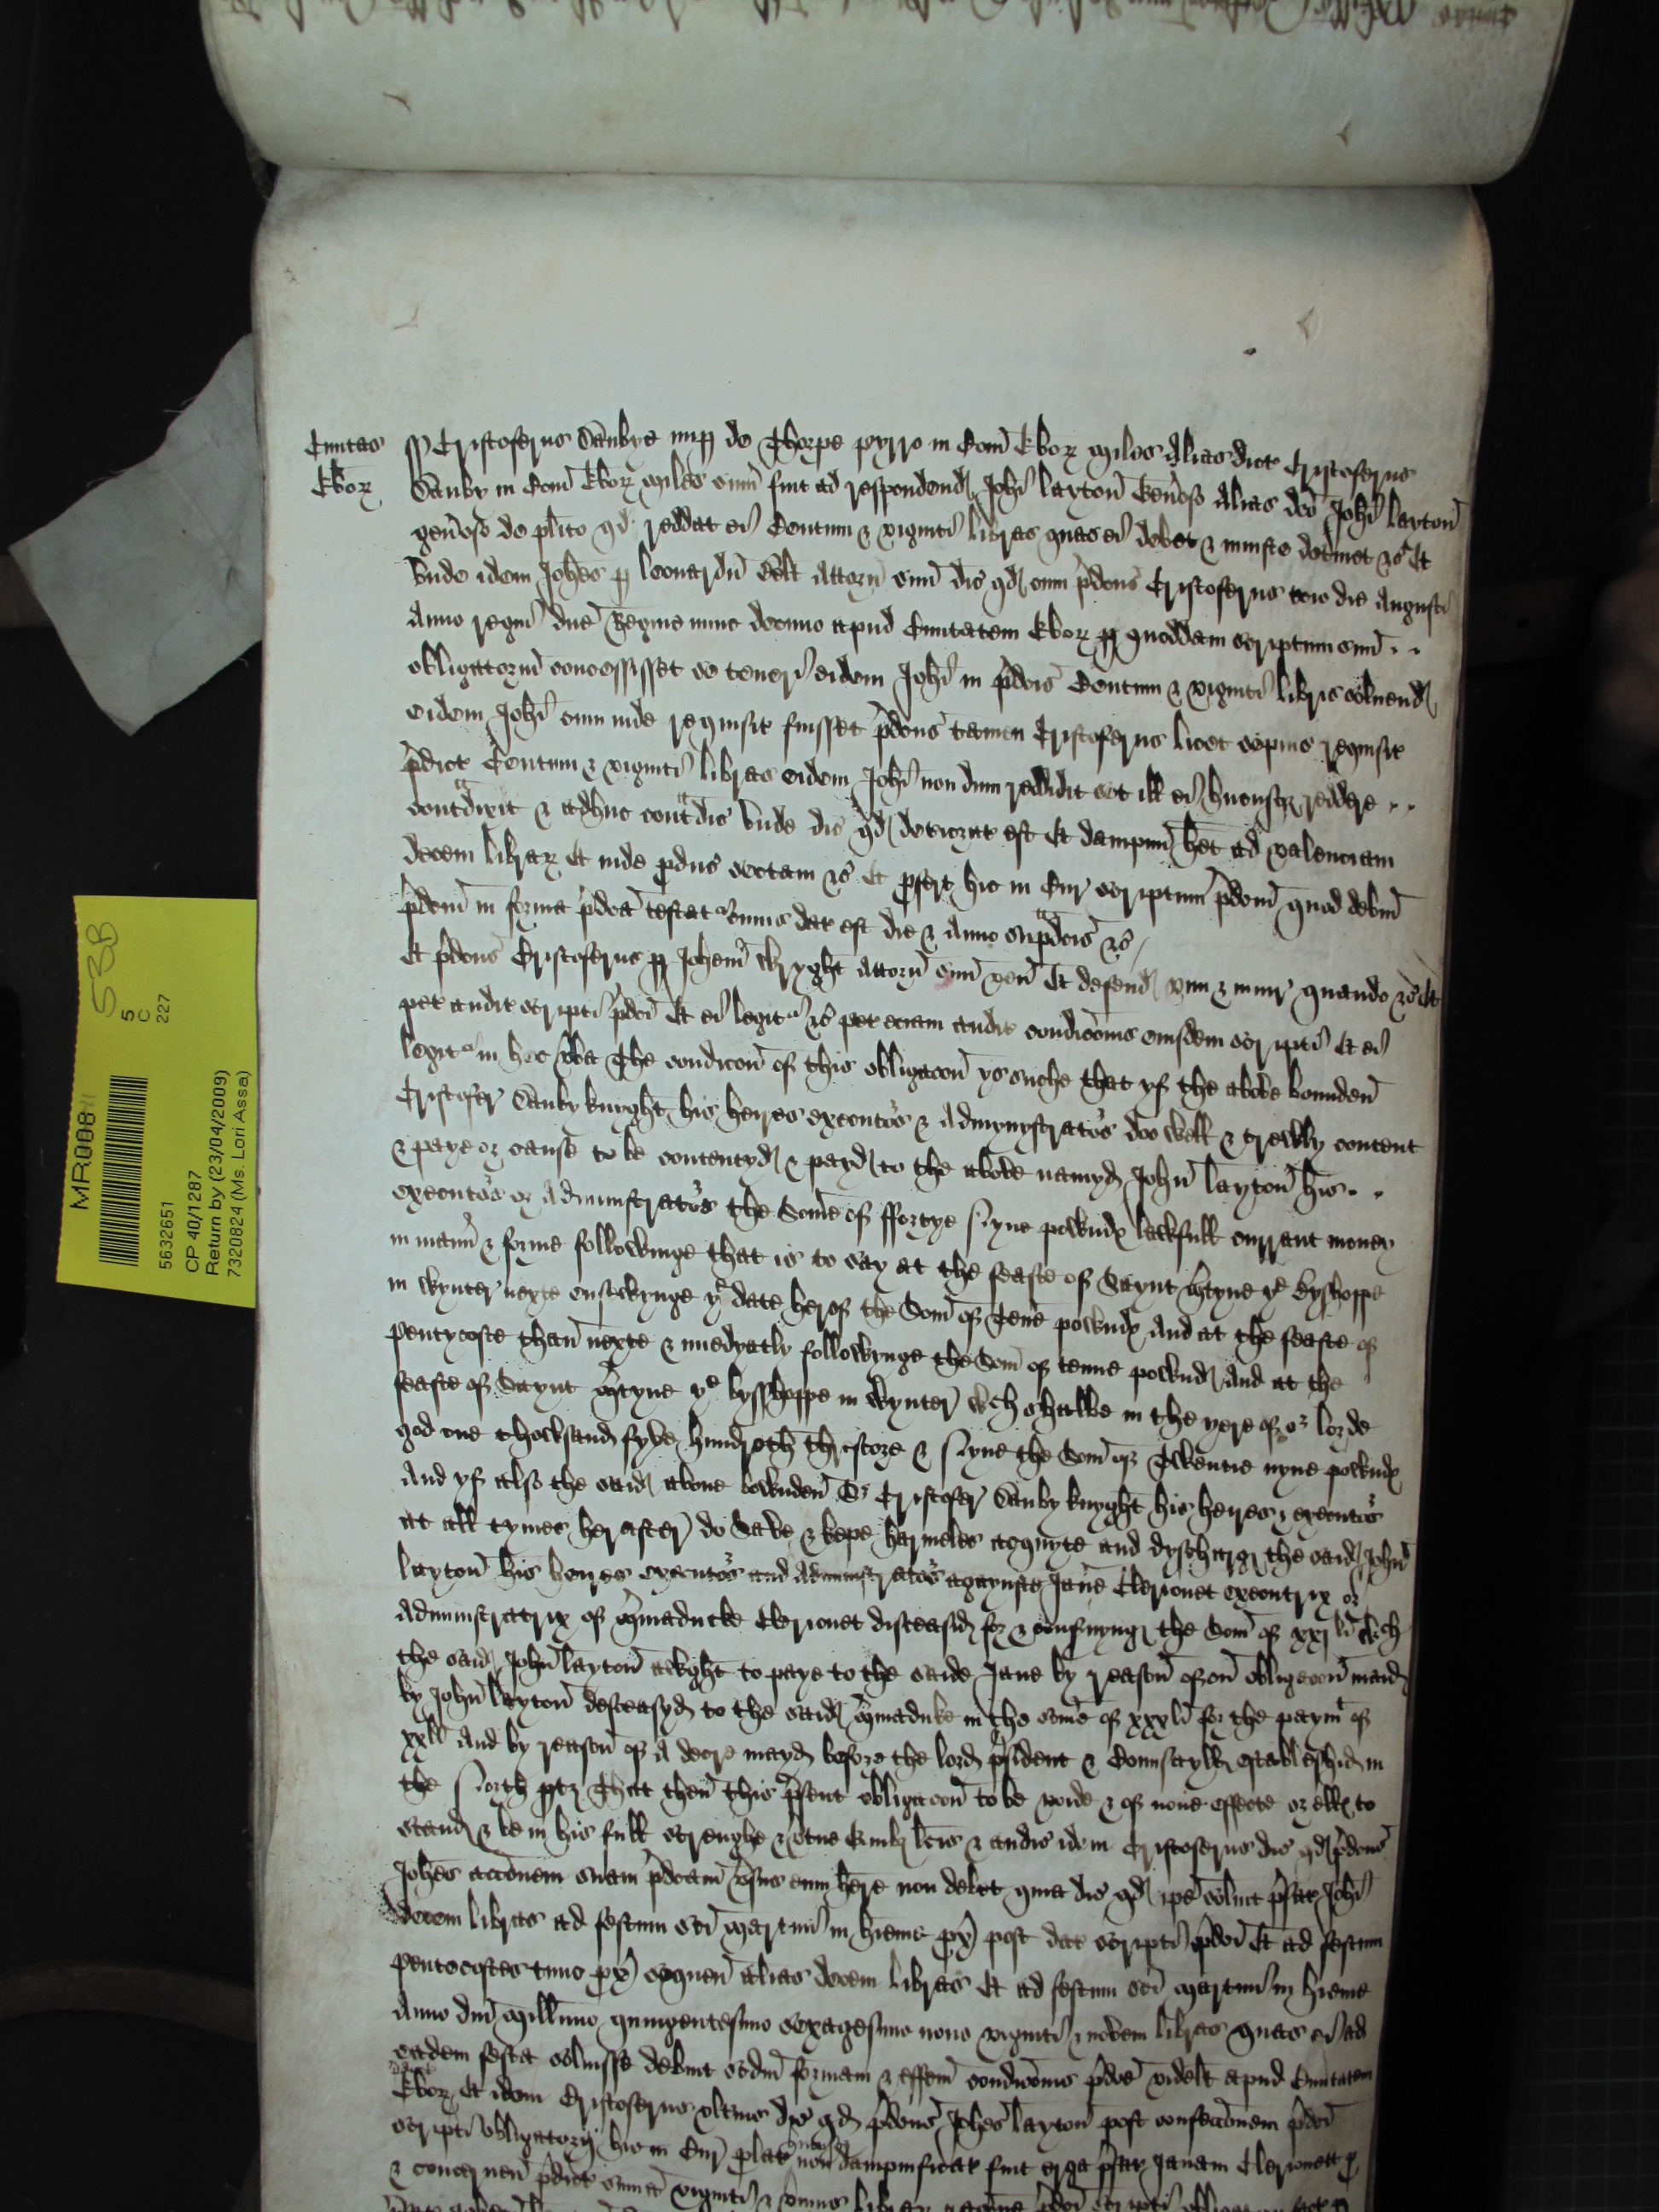 Civitas
Ebor
ss Cristoferus Danbye nup de Thorpe pyrro in Com Ebor Miles Alias dict Cristoferus
Danby in Com Ebor Miles sum fuit ad respondend Johi layton Genoso Alias dco Johi layton
genoso de plito qd reddat ei Centum & viginti libras quas ei debet & iniuste detinet &c Et
Unde idem Johes p leonardu Attorn suu dic qd cum pdcus Cristoferus die Augusti
Anno regni dne Regine nunc decimo apud Civitatem Ebor p quoddam scriptum suu
obligatoriu concessisset se teneri eidem Johi in pdcis Centum & viginti libris solvend
eidem Johi cum inde requisit fuisset pdcus tamen Cristoferus licet sepius requisit
pdict Centum & viginti libras eidem Johi non dum reddidit set ill ei hucusq reddere
contradixit & adhuc contradic Unde dic qd deteriorat est Et dampnu het ad valenciam
decem librar Et inde pduc sectam &c Et pfert hic in Cur scriptum pdcm quod debitu
pdcm in forma pdca testat cuius dat est die & Anno supradcis &c
Et pdcus Cristoferus p Johem Wryght Attorn suu ven Et defend vim & iniur quando &c Et
pet audit scripti pdci Et ei legit &c pet eciam audit condicionis eiusdem scripti Et ei
legit in hec vba The condicon of this obligacon ys suche that yf the above bounden
Cristofer Danby knyght his heires executors & Admynystrators doo well & trewly content
& paye or cause to be contentyd & payd to the above namyd John layton his
executors or Administrators the Some of ffortye Nyne pownds lawfull currant money
in manr & forme followinge that is to say at the feaste of Saynt Mrtyne ye Bysshoppe
in wynter nexte ensewynge ye date herof the Som of Tene pownds And at the feaste of
Pentycoste than nexte & imedyatly followynge the Som of tenne pownds And at the
feaste of Saynt Mrtyne ye bysshoppe in wynter wch shalbe in the yere of or lorde
god one thowsand fyve hundreth threscore & Nyne the Som of Twentie nyne pownds
And yf also the said above bownden Sr Cristofer Danby knyght his heires & executors
at all tymes herafter do Save & kepe harmeles acquyte and dyscharge the said John
layton his heires executors and Administrators agaynste Jane Clerionet executrix or
Administratrix of Mrmaducke Clerionet disceasid for & consnyng the Som of xxj li wch
the said John layton awght to paye to the saide Jane by reason of on obligacon maid
by John layton desceasyd to the said Mrmaduke in the some of xxxli for the paymt of
xxli And by reason of A decre mayd before the lord psident & Counsayle estableshid in
the North ptz That then this psent obligacon to be voide & of none effecte or ells to
stand & be in his full strenghe & vtue Quibz lcis & auditis idem Cristoferus dic qd pdcus
Johes accionem suam pdcam vsus eum here non debet quia dic qd ipe solvit pfat Johi
decem libras ad festum sci Martini in hieme px post dat scripti pdci Et ad festum
Pentecostes tunc px sequen alias decem libras Et ad festum sci Martini in hieme
Anno dni Millimo quingentesimo sexagesimo nono viginti & novem libras quas ei ad
eadem festa solvisse debuit scdm formam & effcm condicionis pdce videlt apud Civitatem
Ebor Et idem Cristoferus vlterius dic qd pdcus Johes layton post confeccionem pdci
scripti obligatorij hic in Cur plat hucusq non dampnificat fuit erga pfat Janam Clerionett p
& concernen pdict summa viginti & unius librar
MR008
538
5
C
227
5632651
CP 40/1287
Return by (23/04/2009)
7320824 (Ms. Lori Assa)